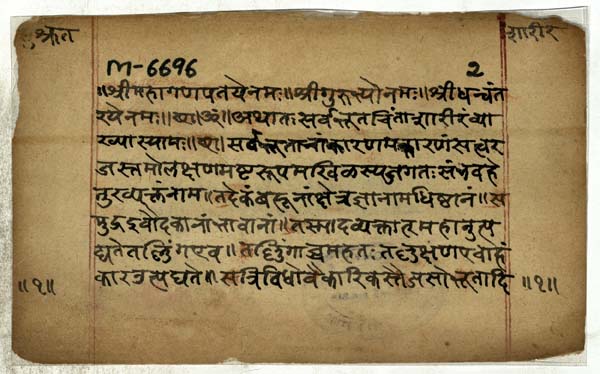 सुश्रुत
शारीर
M-6696
2
॥श्रीमहागणपतयेनमः॥श्रीगुरुभ्योनमः॥श्रीधन्वंत
रयेनमः॥छ॥ॐ॥अथातःसर्वभूतचिंताशारीरंव्या
ख्यास्यामः॥छ॥सर्वभूतानांकारणमकारणंसत्वर
जस्तमोलक्षणमष्टरूपमखिलस्यजगतःसंभवहे
तुरव्यक्तंनाम॥तदेकंबहूनांक्षेत्रज्ञानामधिष्ठानं॥स
मुद्रइवोदकानांभावानां॥तस्मादव्यक्तान्महानुत्प
द्यतेतल्लिंगएव॥तल्लिंगाच्चमहतःतल्लक्षणएवाहं
कारउत्पद्यते॥सत्रिविधोवैकारिकस्तैजसोभूतादि
॥१॥
॥१॥